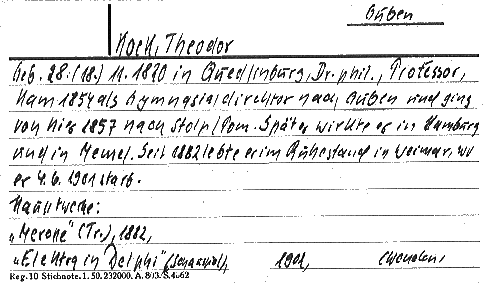 Guben
Kock, Theodor
Geb. 28. (18.) 11. 1820 in Quedlinburg, Dr. phil., Professor,
kam 1854 als Gymnasialdirektor nach Guben und ging
von hier 1857 nach Stolp/Pom. Später wirkte er in Hamburg
und in Memel. Seit 1882 lebte er im Ruhestand in Weimar, wo
er 4. 6. 1901 starb.
Hauptwerke:
„Merope" (Tr.), 1882,
„Elektra in Delphi" (Schauspiel), 1901,
Reg. 10 Stichnote. 1. 50. 232000. A. 803. S. 4.62